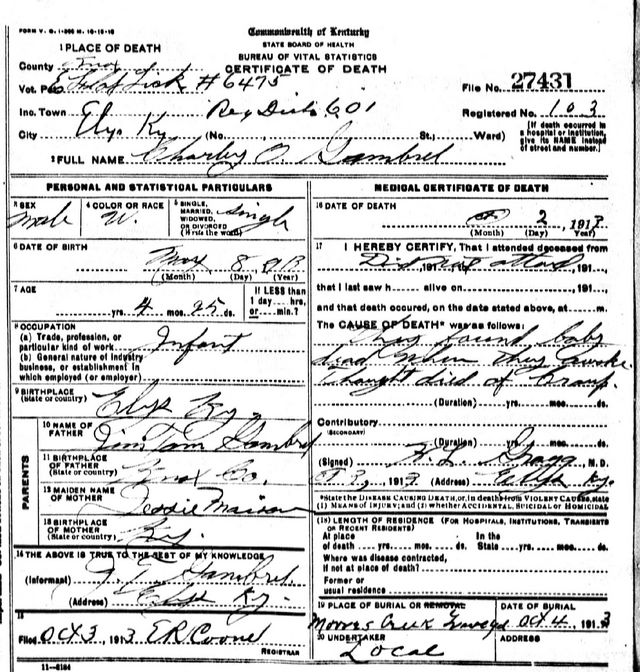 FORM V. S. 1-
Commonwealth of Kentucky
STATE BOARD OF HEALTH
BUREAU OF VITAL STATISTICS
CERTIFICATE OF DEATH
1 PLACE OF DEATH
County Knox
Vot. Pct. Flat Lick #6475
File No. 27431
Inc. Town Reg Dist 601
Registered No. 103
City Elys Ky (No. St.; Ward)
(If death occurred in a hospital or institution, give its NAME instead of street and number.)
2 FULL NAME Charley O. Gambrel
PERSONAL AND STATISTICAL PARTICULARS
3 SEX Male
4 COLOR OR RACE W.
5 SINGLE, MARRIED, WIDOWED, OR DIVORCED (Write the word) Single
6 DATE OF BIRTH
May 8
(Month) (Day) (Year)
7 AGE
yrs. 4 mos. 25 ds.
If LESS than 1 day hrs. or min.?
8 OCCUPATION
(a) Trade, profession, or particular kind of work Infant
(b) General nature of industry business, or establishment in which employed (or employer)
9 BIRTHPLACE
(State or country) Elys Ky
PARENTS
10 NAME OF FATHER Jim Tom Gambrel
11 BIRTHPLACE OF FATHER
(State or country) Knox Co.
12 MAIDEN NAME OF MOTHER Jessie
13 BIRTHPLACE OF MOTHER
(State or country) Ky.
14 THE ABOVE IS TRUE TO THE BEST OF MY KNOWLEDGE
(Informant) Gambrel
(Address) Elys Ky.
15
Filed Oct 3, 1913 ER
REGISTRAR
MEDICAL CERTIFICATE OF DEATH
16 DATE OF DEATH
2, 1913
(Month) (Day) (Year)
17 I HEREBY CERTIFY, That I attended deceased from
Did not attend, 191
that I last saw h alive on , 191
and that death occured, on the date stated above, at m.
The CAUSE OF DEATH* was as follows:
They found baby
dead when they awoke
thought died of Croup.
(Duration) yrs. mos. ds.
Contributory
(SECONDARY)
(Duration) yrs. mos. ds.
(Signed) , M.D.
, 1913 (Address) Elys Ky.
*State the DISEASE CAUSING DEATH, or, in deaths from VIOLENT CAUSES, state
(1) MEANS OF INJURY; and (2) whether ACCIDENTAL, SUICIDAL or HOMICIDAL
(18) LENGTH OF RESIDENCE (FOR HOSPITALS, INSTITUTIONS, TRANSIENTS OR RECENT RESIDENTS)
At place of death yrs. mos. ds. In the State yrs. mos. ds.
Where was disease contracted, if not at place of death?
Former or usual residence
19 PLACE OF BURIAL OR REMOVAL
Creek
DATE OF BURIAL
Oct 4, 1913
20 UNDERTAKER
Local
ADDRESS
11-5184